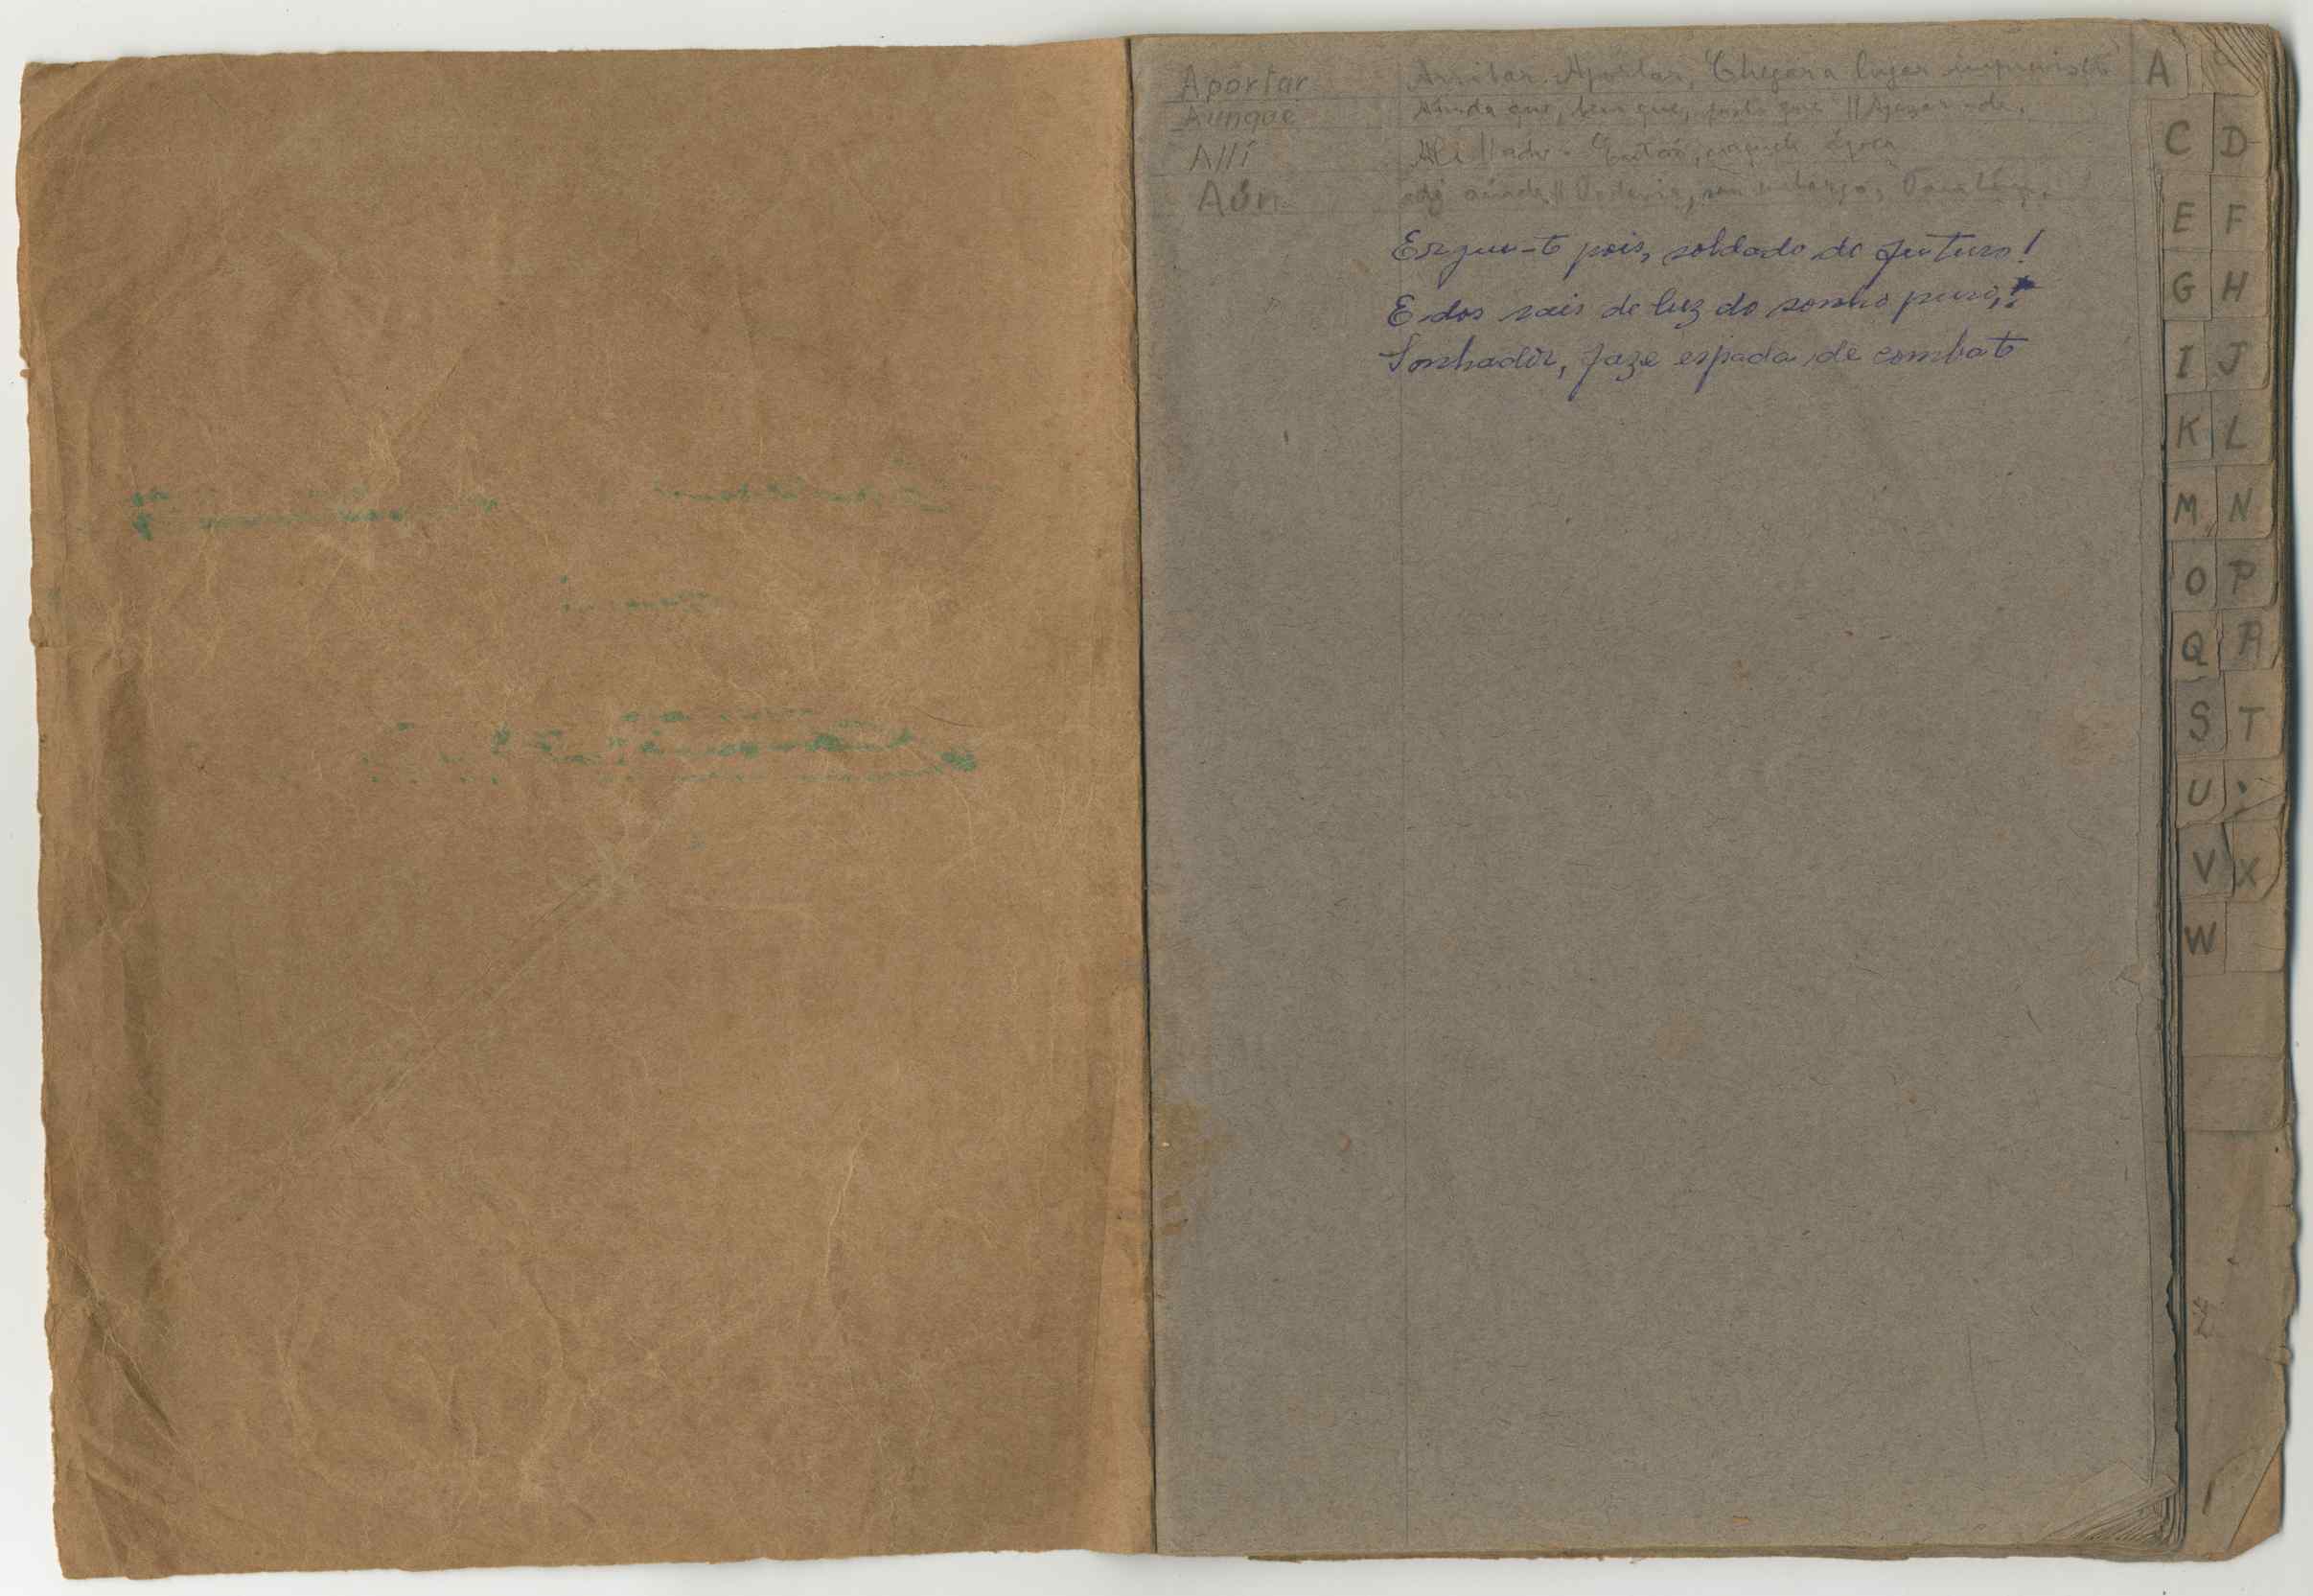 Aportar Arribar. Aportar, Chegar a lugar imprevisto
Aunque Ainda que, bem que, posto que || Apezar de.
Allí Ali || adv. Então, naquela época
Aún adj ainda ||
Ergue-te pois, soldado do futuro!
E dos rais de luz do sonho puro,!
Sonhador, faze espada de combate
A
C D
E F
G H
I J
K L
M N
O P
Q R
S T
U
V X
W
Z